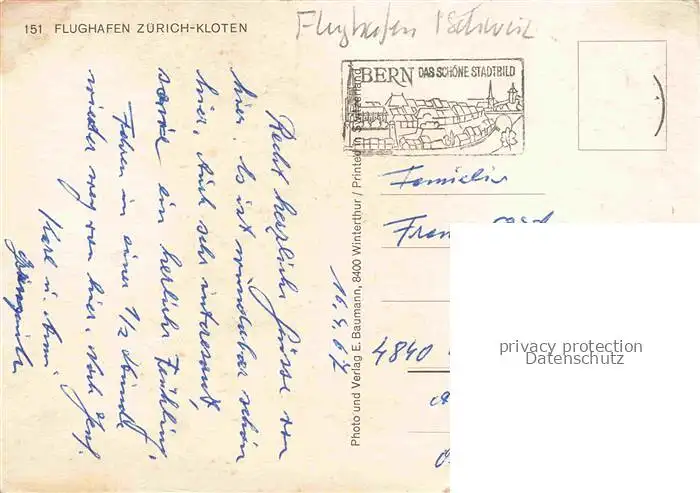 151 FLUGHAFEN ZÜRICH-KLOTEN
Flughafen Schweiz
BERN DAS SCHÖNE STADTBILD
Recht herzliche Grüsse von
hier. Es ist wunderbar schön
hier, Auch sehr interesant,
sowie ein herliche Frühling
Fahren in einer 1/2 Stunde
wieder weg von hier. nach Genf.
Karl u. Anni
16.4.67
Photo und Verlag E. Baumann, 8400 Winterthur / Printed in Switzerland
Familie
Fran
4840
privacy protection
Datenschutz